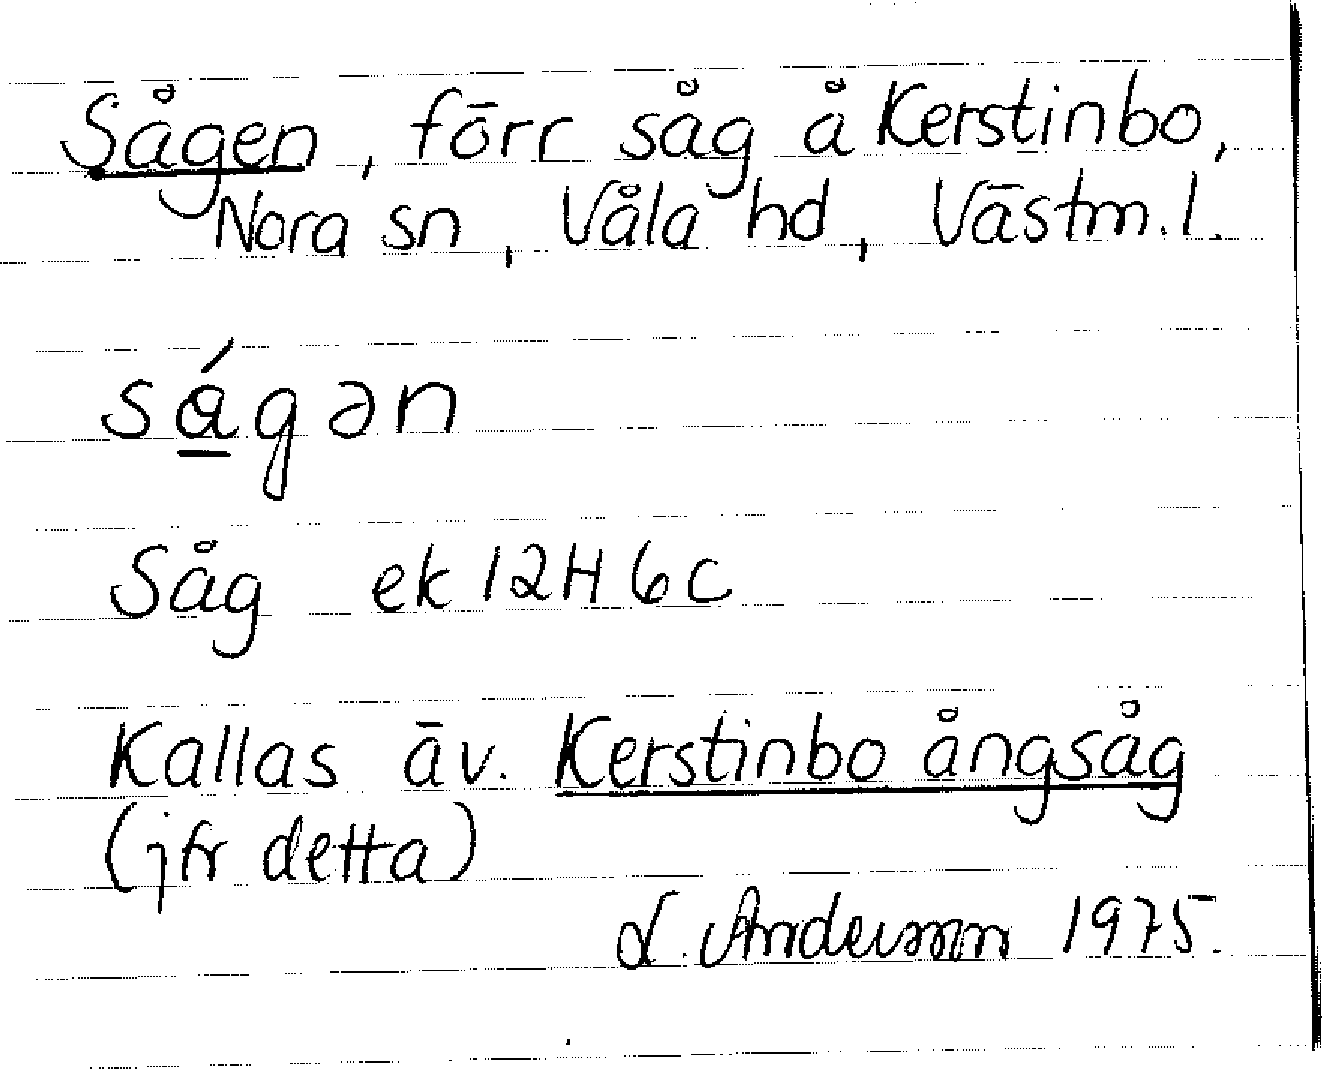 Sågen, förr såg å Kerstinbo,
Nora sn, Våla hd, Västm.l.
ságən
Såg ek 12H6c
Kallas äv. Kerstinbo ångsåg
(jfr detta)
L. Andersson 1975.